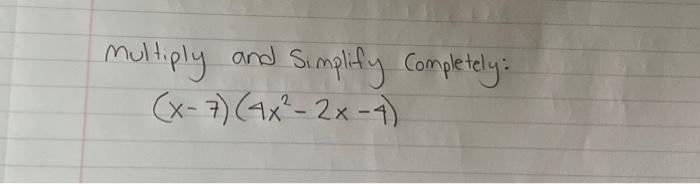 Multiply and Simplify Completely:
(x-7)(4x²-2x-4)